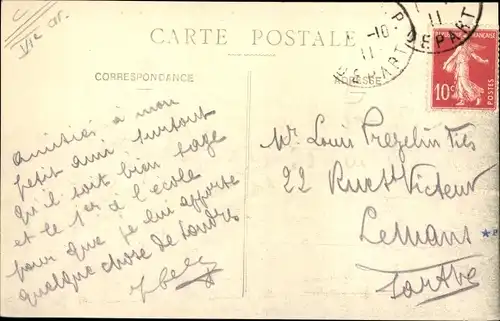 VIe ar.
CARTE POSTALE
CORRESPONDANCE
ADRESSE
-10
11
DEPART
11
DEPART
10c
FRANÇAISE
POSTES
amitiés à mon
petit ami surtout
qu'il soit bien sage
et le 1er à l'école
pour que je lui apporte
quelque chose de Londres
Mr Louis Pregelin Fils
22 Rue St Victeur
Le Mans
Sarthe